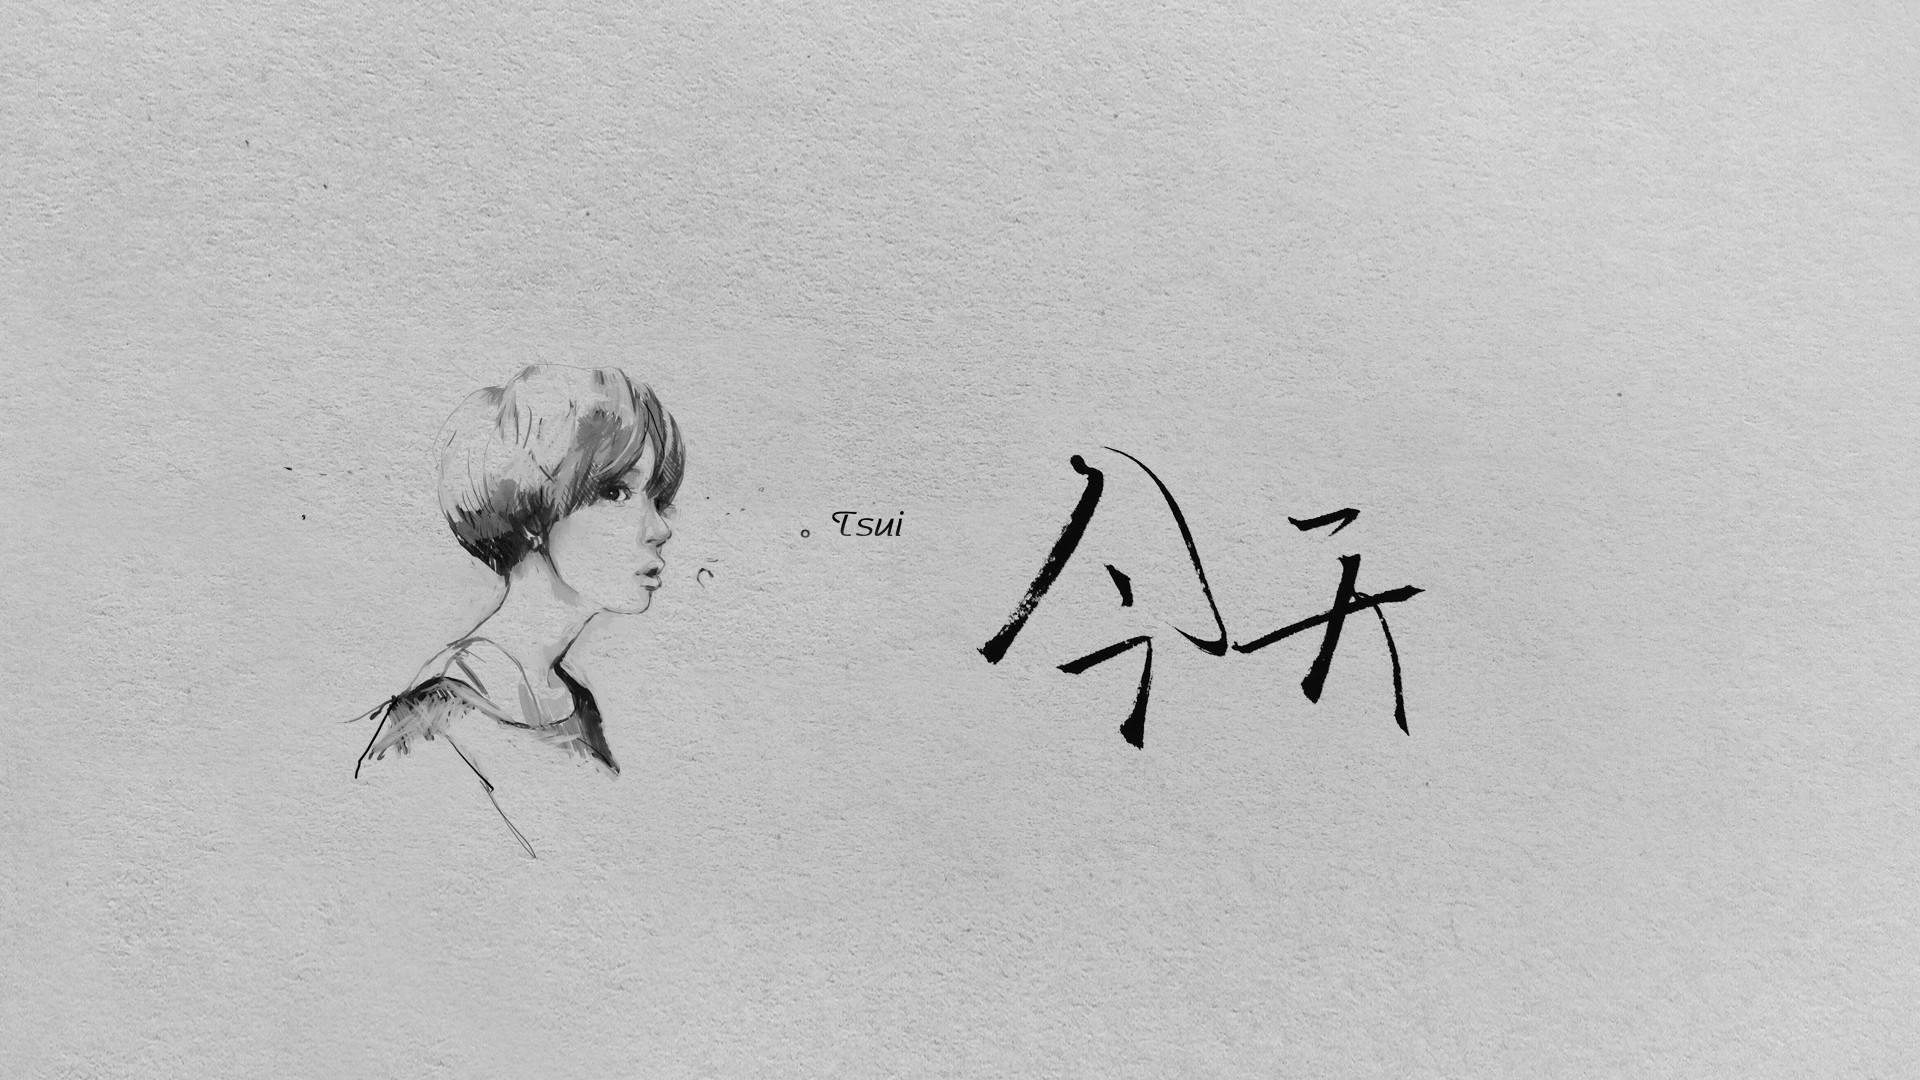 Tsui
今天